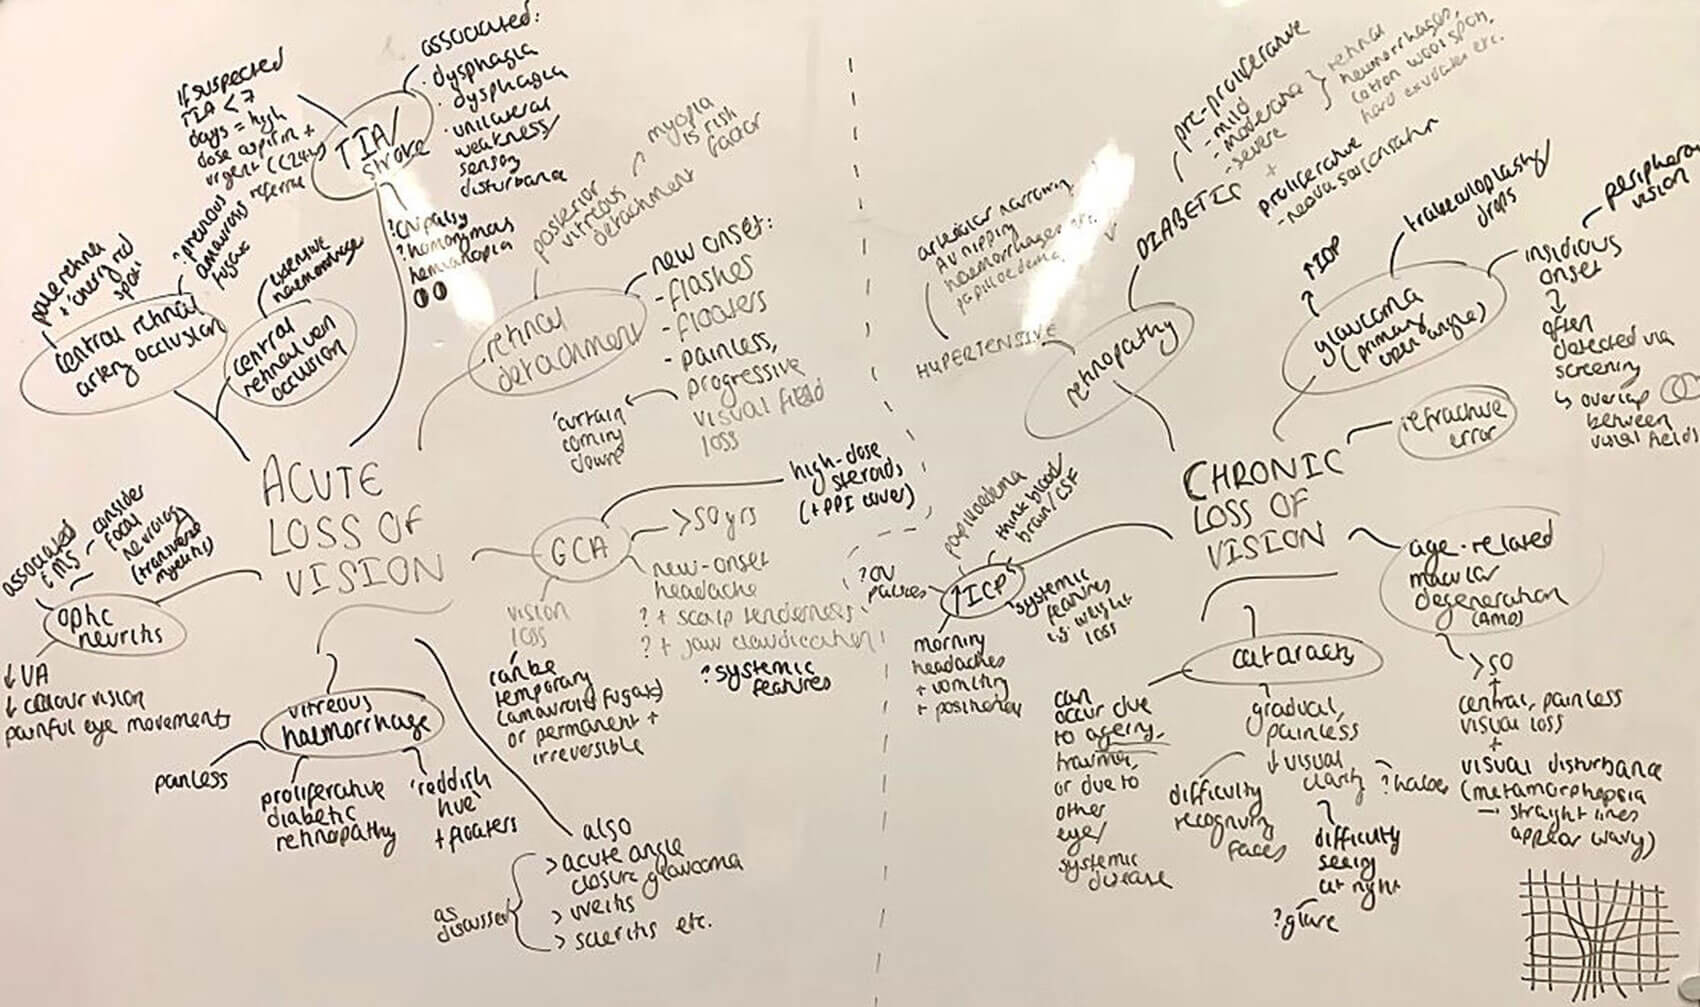 ACUTE
LOSS OF
VISION
TIA/
stroke
if suspected
TIA < 7
days = high
dose aspirin +
urgent (<24h)
referral
associated:
· dysphagia
· dysphasia
· unilateral
weakness/
sensory
disturbance
? CN palsy
? homonymous
hemianopia
central retinal
artery occlusion
pale retina
+ 'cherry red
spot'
? previous
amaurosis
fugax
central
retinal vein
occlusion
extensive
haemorrhage
retinal
detachment
posterior
vitreous
detachment
myopia
is risk
factor
new onset:
- flashes
- floaters
- painless,
progressive
visual field
loss
'curtain
coming
down'
GCA
high-dose
steroids
(+ PPI cover)
>50 yrs
new-onset
headache
? + scalp tenderness
? + jaw claudication
? systemic
features
vision
loss
can be
temporary
(amaurosis fugax)
or permanent +
irreversible
optic
neuritis
associated
c MS
- consider
focal
neurology
(transverse
myelitis)
↓ VA
↓ colour vision
painful eye movements
vitreous
haemorrhage
painless
proliferative
diabetic
retinopathy
'reddish
hue'
+ floaters
also
> acute angle
closure glaucoma
> uveitis
> scleritis etc.
as
discussed
CHRONIC
LOSS OF
VISION
retinopathy
HYPERTENSIVE
arteriolar narrowing
AV nipping
haemorrhages etc.
papilloedema
DIABETIC
pre-proliferative
- mild
- moderate
- severe
retinal
haemorrhages,
cotton wool spots,
hard exudates etc.
+
proliferative
- neovascularisation
glaucoma
(primary
open angle)
↑ IOP
trabeculoplasty/
drops
insidious
onset
peripheral
vision
often
detected via
screening
↳ overlap
between
visual fields
refractive
error
age-related
macular
degeneration
(AMD)
>50
+
central, painless
visual loss
+
visual disturbance
(metamorphopsia
→ straight lines
appear wavy)
cataracts
can
occur due
to ageing,
trauma,
or due to
other
eye/
systemic
disease
gradual,
painless
↓ visual
clarity
difficulty
recognising
faces
? haloes
difficulty
seeing
at night
? glare
↑ ICP
papilloedema
think blood/
brain/CSF
? CN
palsies
systemic
features
i.e. weight
loss
morning
headaches
+ vomiting
+ positional